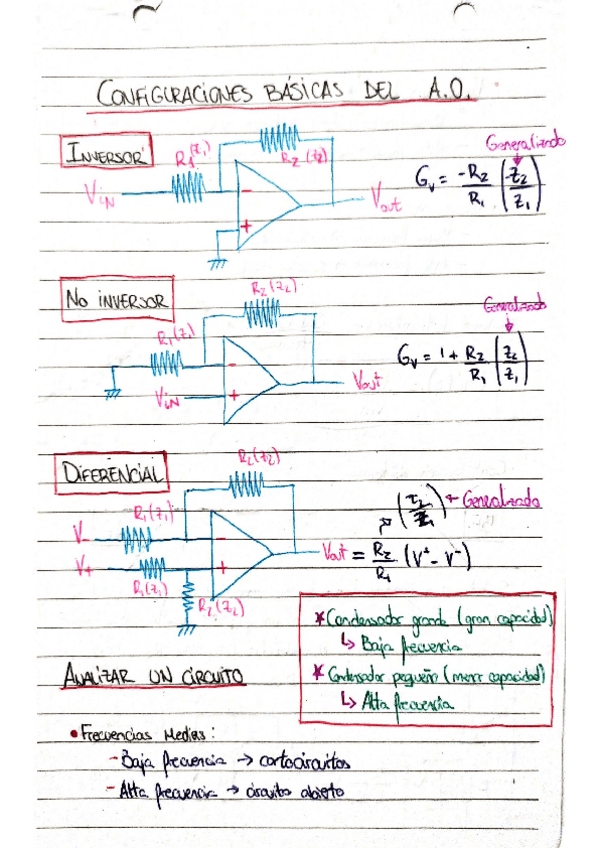 CONFIGURACIONES BÁSICAS DEL A.O.
INVERSOR
R1(z1)
R2 (z2)
VIN
-
+
Vout
Generalizado
Gv = -R2/R1 (-z2/z1)
NO INVERSOR
R1(z1)
R2(z2)
VIN
-
+
Vout
Generalizado
Gv = 1 + R2/R1 (z2/z1)
DIFERENCIAL
R1(z1)
R2(z2)
V-
V+
-
+
R1(z1)
R2(z2)
(z2/z1) ← Generalizado
Vout = R2/R1 (V+ - V-)
* Condensador grande (gran capacidad)
↳ Baja frecuencia
* Condensador pequeño (menor capacidad)
↳ Alta frecuencia
ANALIZAR UN CIRCUITO
• Frecuencias Medias:
- Baja frecuencia → cortocircuitos
- Alta frecuencia → circuito abierto